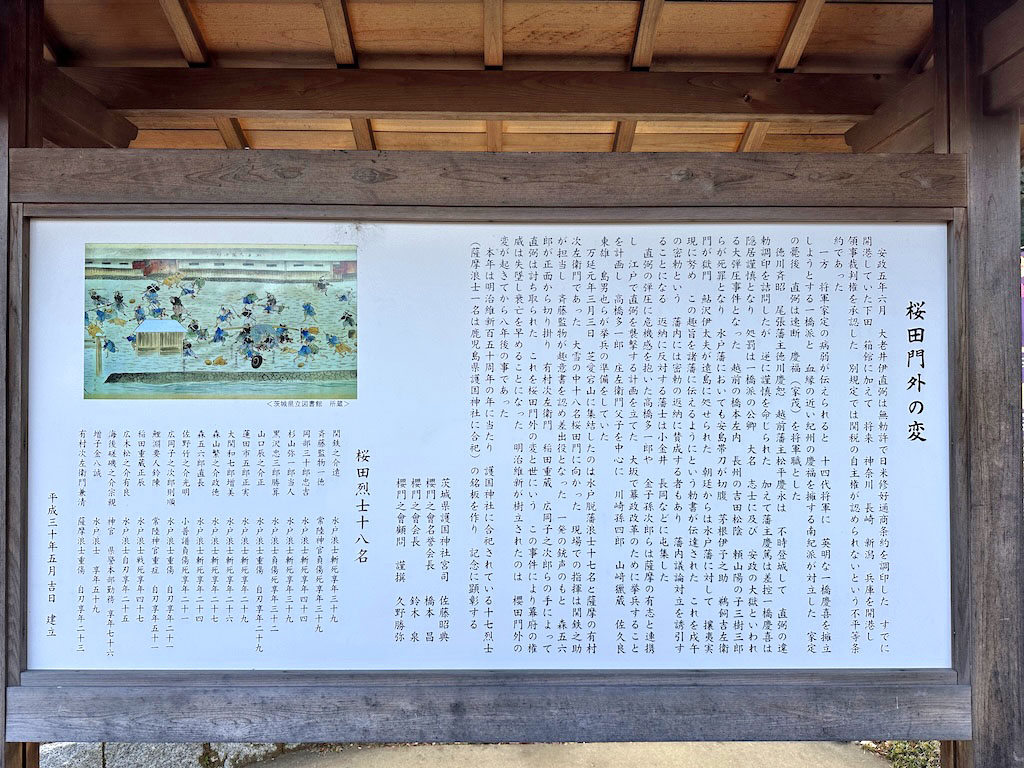 桜田門外の変
安政五年六月　大老井伊直弼は無勅許で日米修好通商条約を調印した　すでに
開港していた下田　箱館に加えて　将来　神奈川　長崎　新潟　兵庫を開港し
領事裁判権を承認した　別規定では関税の自主権が認められないという不平等条
約であった
一方　将軍家定の病弱が伝えられると　十四代将軍に　英明な一橋慶喜を擁立
しようとする一橋派と　血縁の近い紀州の慶福を擁する南紀派が対立した　家定
の薨後　直弼は速断　慶福（家茂）を将軍職とした
徳川斉昭　尾張藩主徳川慶恕　越前藩主松平慶永は　不時登城して　直弼の違
勅調印を詰問したが　逆に謹慎を命じられた　加えて藩主慶篤は差控　一橋慶喜は
隠居謹慎となり　処罰は一橋派の公卿　大名　志士に及び　安政の大獄といわれ
る大弾圧事件となった　越前の橋本左内　長州の吉田松陰　頼山陽の子三樹三郎
らが死罪となり　水戸藩においても安島帯刀が切腹　茅根伊予之助　鵜飼吉左衛
門が獄門　鮎沢伊大夫が遠島に処せられた　朝廷からは水戸藩に対して　攘夷実
現に努め　この趣旨を諸藩に伝えるようにという勅書が伝達された　これを戊午
の密勅という　藩内には密勅の返納に賛成する者もあり　藩内議論対立を誘引す
ることになる　返納に反対する藩士は小金井　長岡などに屯集した
直弼の弾圧に危機感を抱いた高橋多一郎や　金子孫次郎らは薩摩の有志と連携
し　江戸で直弼を襲撃する計画を立てた　大坂で幕政改革のために挙兵すること
を計画し　高橋多一郎　庄左衛門父子を中心に　川崎孫四郎　山崎獵蔵　佐久良
東雄　島男也らが挙兵の準備をしていた
万延元年三月三日　芝愛宕山に集結したのは水戸脱藩浪士十七名と薩摩の有村
次左衛門であった　大雪の中十八名桜田門に向かった　現場での指揮は関鉄之助
が担当し　斉藤監物が趣意書を認め差出役となった　一発の銃声のもと　森五六
郎が正面から切り掛り　有村次左衛門　稲田重蔵　広岡子之次郎らの手によって
直弼は討ち取られた　これを桜田門外の変と世にいう　この事件により幕府の権
威は失墜し衰亡を早めることになった　明治維新が樹立されたのは　櫻田門外の
変が起きてから八年後の事であった
本年は明治維新百五十周年の年に当たり　護国神社に合祀されている十七烈士
（薩摩浪士一名は鹿児島県護国神社に合祀）の銘板を作り　記念に顕彰する
茨城県護国神社宮司　佐藤昭典
櫻門之會名誉会長　橋本　昌
櫻門之會会長　鈴木　泉
櫻門之會顧問　謹撰　久野勝弥
＜茨城県立図書館　所蔵＞
桜田烈士十八名
関鉄之介遠　水戸浪士斬死享年三十九
斉藤監物一徳　常陸神官負傷死享年三十九
岡部三十郎忠吉　水戸浪士斬死享年四十四
杉山弥一郎当人　水戸浪士斬死享年三十九
黒沢忠三郎勝算　水戸浪士負傷死享年三十二
山口辰之介正　水戸浪士重傷　自刃享年二十九
蓮田市五郎正実　水戸浪士斬死享年二十九
大関和七郎増美　水戸浪士斬死享年二十六
森山繁之介政徳　水戸浪士斬死享年二十七
森五六郎直長　水戸浪士斬死享年二十四
佐野竹之介光明　小普請負傷死享年二十一
広岡子之次郎則順　水戸浪士重傷　自刃享年二十一
鯉淵要人鈴陳　常陸神官重症　自刃享年五十一
稲田重蔵正辰　水戸浪士戦死享年四十七
広木松之介有良　水戸浪士自刃享年二十五
海後磋磯之介宗親　神官　県警本部勤務　享年七十六
増子金八誠　水戸浪士　享年五十九
有村次左衛門兼清　薩摩浪士重傷　自刃享年二十三
平成三十年五月吉日　建立